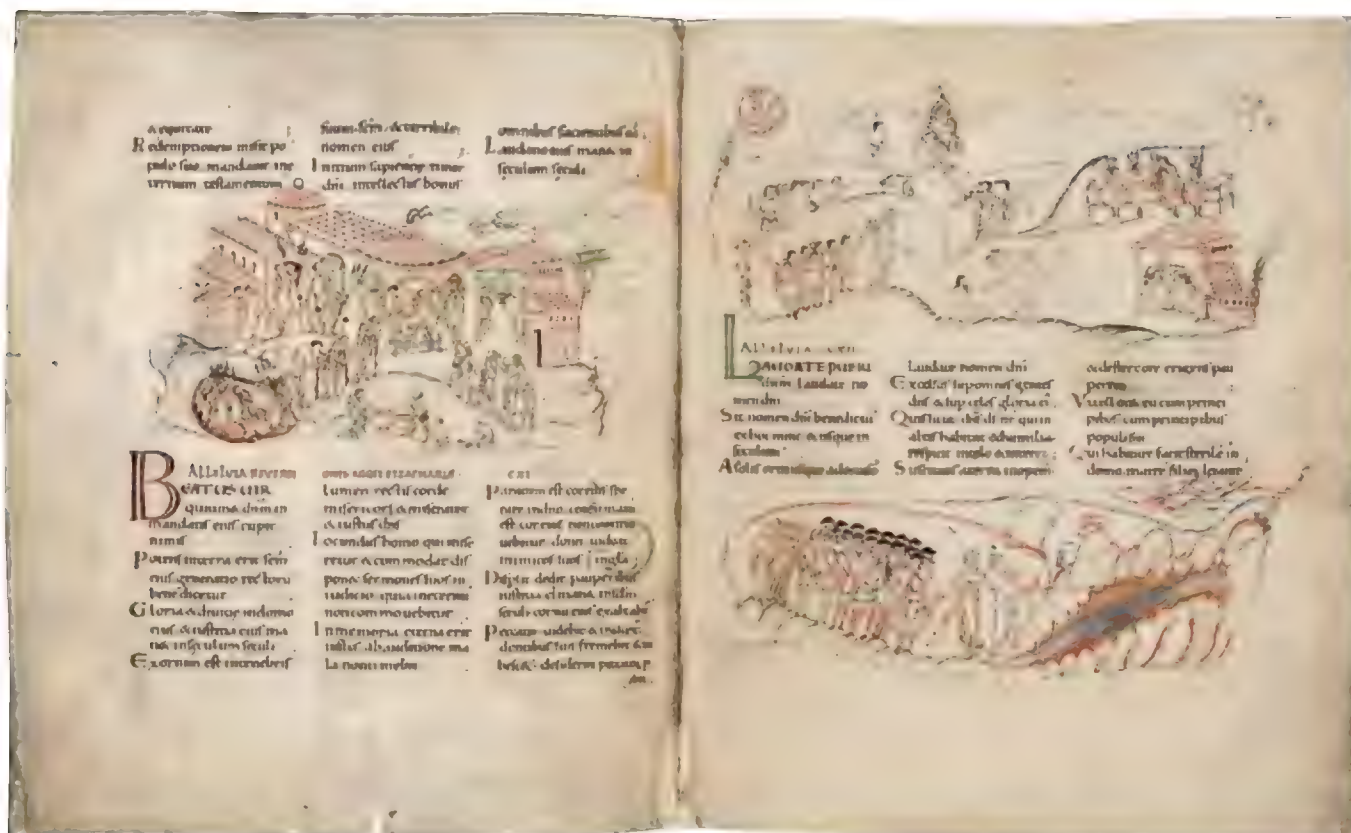 Redemptionem misit po
pulo suo mandauit in e
ternum testamentum
suum scm & terribile
nomen eius
Initium sapientie timor
dni intellectus bonus
omnibus facientibus
Laudatio eius manet in
seculum seculi
ALLELUIA REVERS
BEATUS UIR
qui timet dnm in
mandatis eius cupit
nimis
Potens in terra erit sem
eius generatio rectoru
benedicetur
Gloria & diuitie in domo
eius & iustitia eius ma
net in seculum seculi
Exortum est in tenebris
lumen rectis corde
misericors & miserator
& iustus dns
Iocundus homo qui mise
retur & commodat dis
ponet sermones suos in
iudicio quia in eternu
non commouebitur
In memoria eterna erit
iustus ab auditione ma
la non timebit
CXI
Paratum est cor eius spe
rare in dno confirmatum
est cor eius non commo
uebitur donec uideat
inimicos suos
Dispersit dedit pauperibus
iustitia ei manet in sclm
seculi cornu eius exaltabi
Peccator uidebit & irasce
dentibus suis fremebit &
tabesc& desiderium
ALLELUIA CXII
LAUDATE PUERI
dnm laudate no
men dni
Sit nomen dni benedictu
ex hoc nunc & usque in
seculum
A solis ortu usque ad occasu
laudate nomen dni
Excelsus super omnes gentes
dns & sup celos gloria ei
Quis sicut dns ds nr qui in
altis habitat & humilia
respicit in celo & in terra
Suscitans a terra inopem
& de stercore erigens pau
perem
Ut collocet eu cum princi
pibus cum principibus
populi sui
Qui habitare facit sterile in
domo matre filioru letante